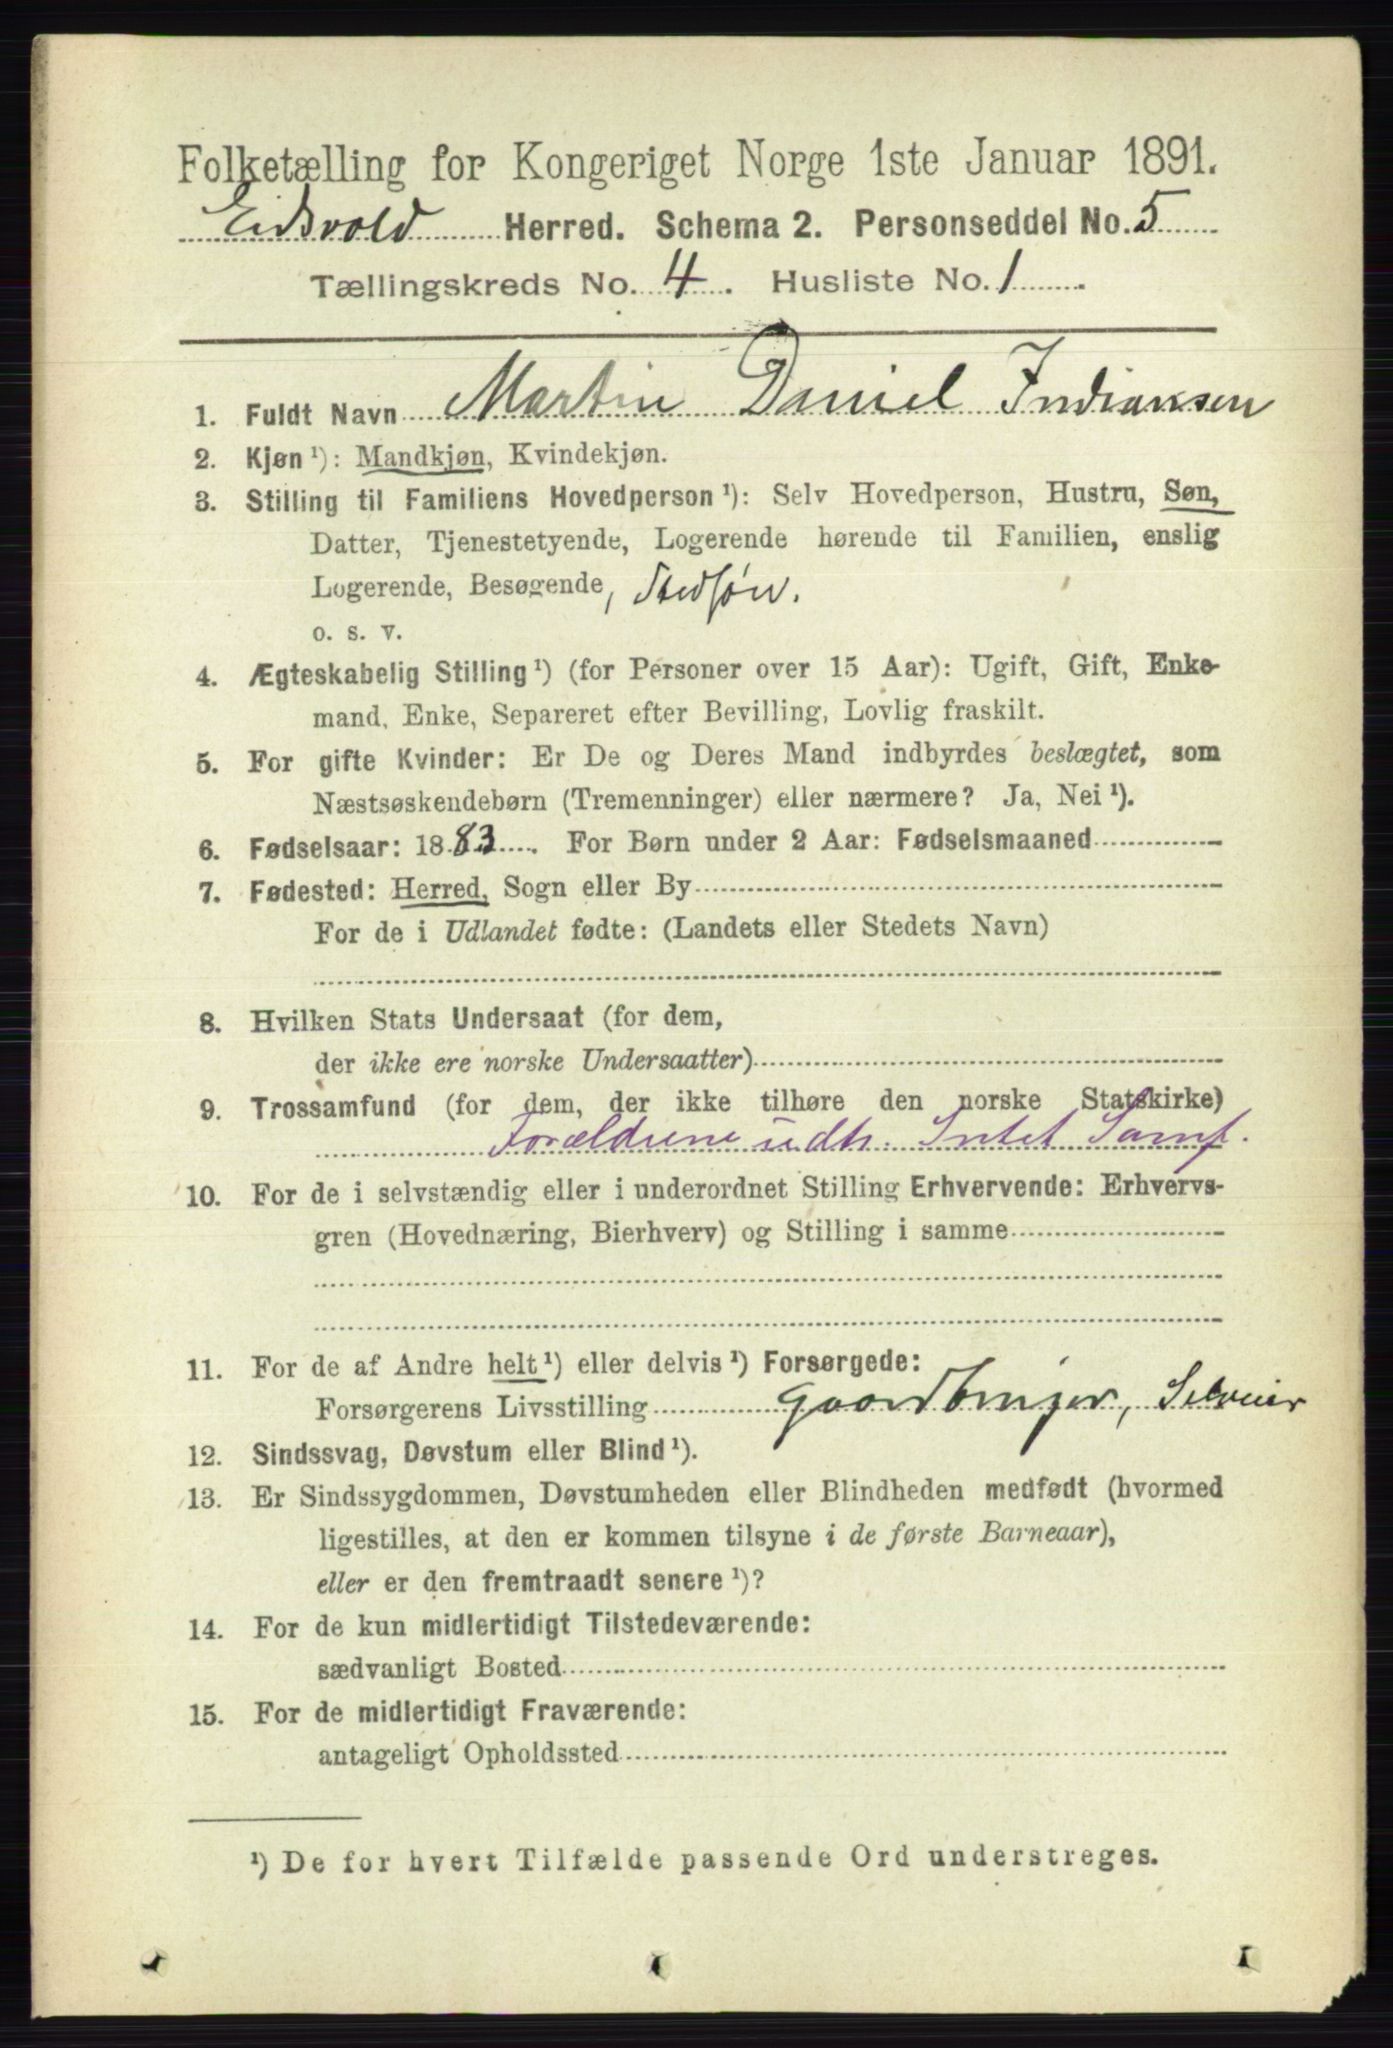 Folketælling for Kongeriget Norge 1ste Januar 1891.
Eidsvold Herred. Schema 2. Personseddel No. 5
Tællingskreds No. 4. Husliste No. 1.
1. Fuldt Navn Martin Daniel Indiansen
2. Kjøn ¹): Mandkjøn, Kvindekjøn.
3. Stilling til Familiens Hovedperson ¹): Selv Hovedperson, Hustru, Søn,
Datter, Tjenestetyende, Logerende hørende til Familien, enslig
Logerende, Besøgende, Stedsøn.
o. s. v.
4. Ægteskabelig Stilling ¹) (for Personer over 15 Aar): Ugift, Gift, Enke-
mand, Enke, Separeret efter Bevilling, Lovlig fraskilt.
5. For gifte Kvinder: Er De og Deres Mand indbyrdes beslægtet, som
Næstsøskendebørn (Tremenninger) eller nærmere? Ja, Nei ¹).
6. Fødselsaar: 1883. For Børn under 2 Aar: Fødselsmaaned
7. Fødested: Herred, Sogn eller By
For de i Udlandet fødte: (Landets eller Stedets Navn)
8. Hvilken Stats Undersaat (for dem,
der ikke ere norske Undersaatter)
9. Trossamfund (for dem, der ikke tilhøre den norske Statskirke)
Forældrene udtr. Intet Samf.
10. For de i selvstændig eller i underordnet Stilling Erhvervende: Erhvervs-
gren (Hovednæring, Bierhverv) og Stilling i samme
11. For de af Andre helt ¹) eller delvis ¹) Forsørgede:
Forsørgerens Livsstilling Gaardbruger, Selveier
12. Sindssvag, Døvstum eller Blind ¹).
13. Er Sindssygdommen, Døvstumheden eller Blindheden medfødt (hvormed
ligestilles, at den er kommen tilsyne i de første Barneaar),
eller er den fremtraadt senere ¹)?
14. For de kun midlertidigt Tilstedeværende:
sædvanligt Bosted
15. For de midlertidigt Fraværende:
antageligt Opholdssted
¹) De for hvert Tilfælde passende Ord understreges.